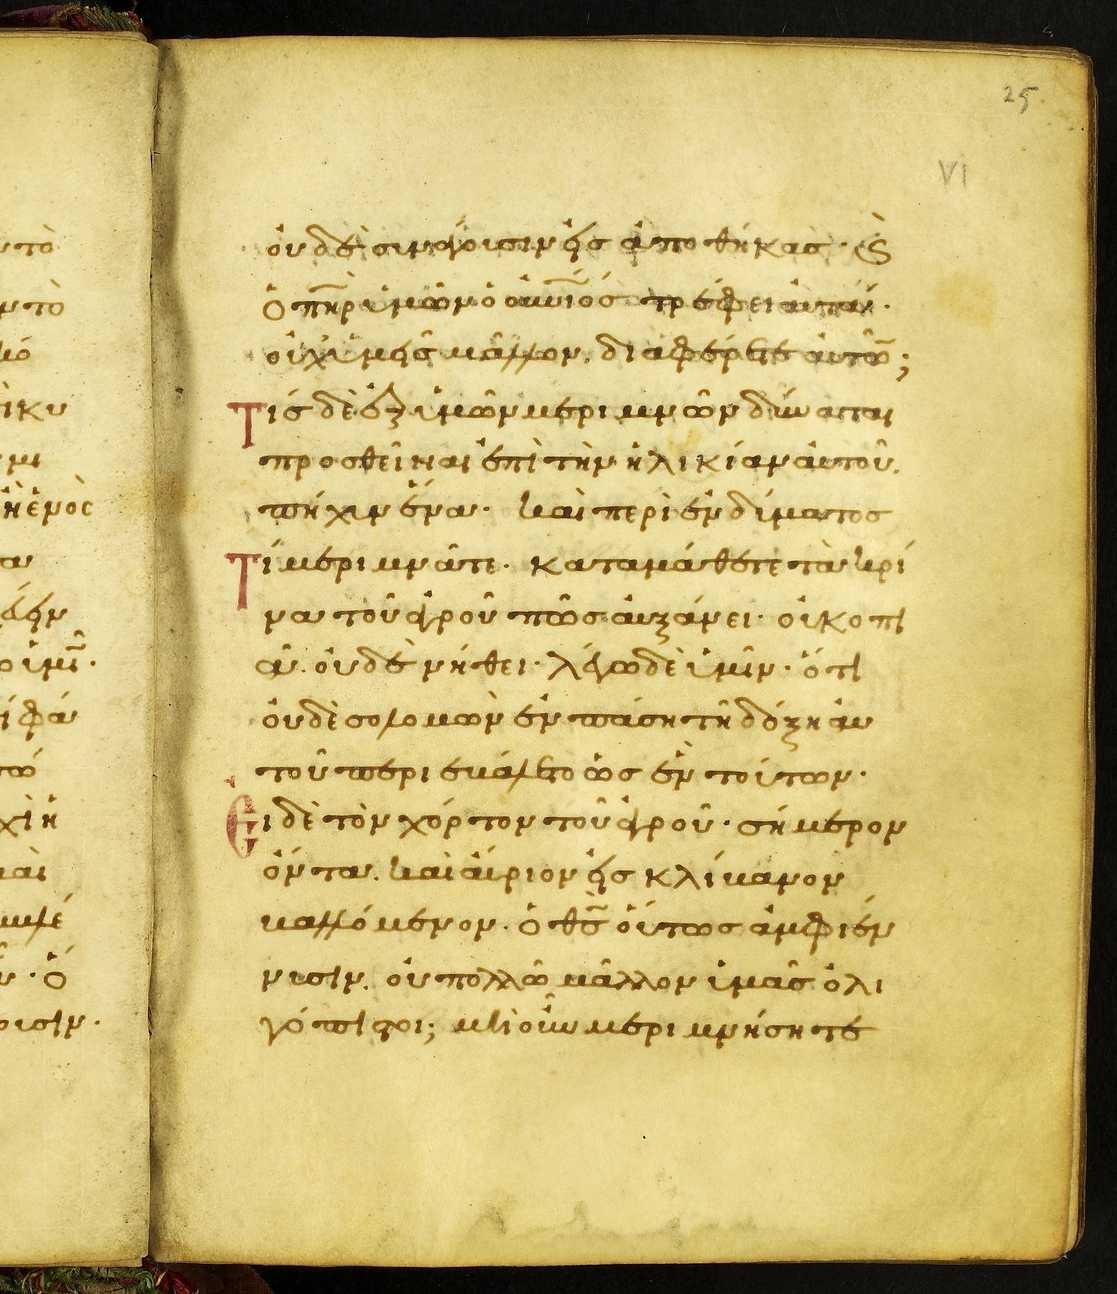 25
VI
οὐδὲ σιναγοισιν εἰς ἀποθήκας· ϗ
ὁ πηρ ὑμῶν ὁ οὐνιος τρέφει αὐτά·
οὐχ ὑμεῖς μᾶλλον. διαφέρετε αὐτῶν;
Τίς δὲ ἐξ ὑμῶν μεριμνῶν δύναται
προσθεῖναι ἐπὶ τὴν ἡλικίαν αὐτοῦ.
πήχιν ἕνα· καὶ περὶ ἐνδίματος
Τί μεριμνᾶτε· καταμάθετε τὰ κρί
να τοῦ ἀγροῦ πῶς αὐξάνει· οὐ κοπι
ᾶ. οὐδὲ νήθει· λέγω δὲ ὑμῖν· ὅτι
οὐδὲ σολομὼν ἐν πάσῃ τῇ δόξῃ αὐ
τοῦ περιεβάλετο ὡς ἓν τούτων·
Εἰ δὲ τὸν χόρτον τοῦ ἀγροῦ· σήμερον
ὄντα. καὶ αὔριον εἰς κλίβανον
βαλλόμενον. ὁ θς οὕτως ἀμφιέν
νισιν. οὐ πολλῶ μᾶλλον ὑμᾶς ὀλι
γόπιστοι; μὴ οὖν μεριμνήσητε
υτὸ
ντὸ
ικυ
μι
ἢ ἑνὸς
ὑμῖν·
χὶ ἡ
καὶ
ὁ
ουσιν·